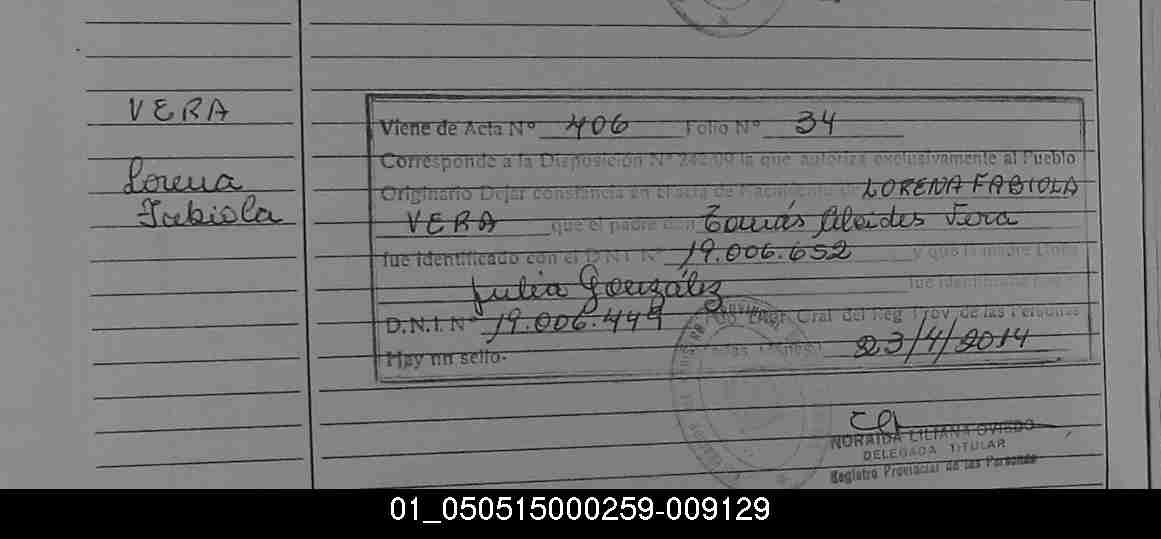 VERA
Lorena
Fabiola
Viene de Acta Nº 406 Folio Nº 34
Corresponde a la Disposición Nº 242/09 la que autoriza exclusivamente al Pueblo
Originario Dejar constancia en el acta de Nacimiento de LORENA FABIOLA
VERA que el padre don Tomás Alcides Vera
fue identificado con el D.N.I. Nº 19.006.652 y que la madre Doña
Julia González fue identificada
D.N.I. Nº 19.006.449 Gral del Reg Prov. de las Personas
Hay un sello. 23/4/2014
NORAIDA LILIANA OVIEDO
DELEGADA TITULAR
Registro Provincial de las Personas
01_050515000259-009129